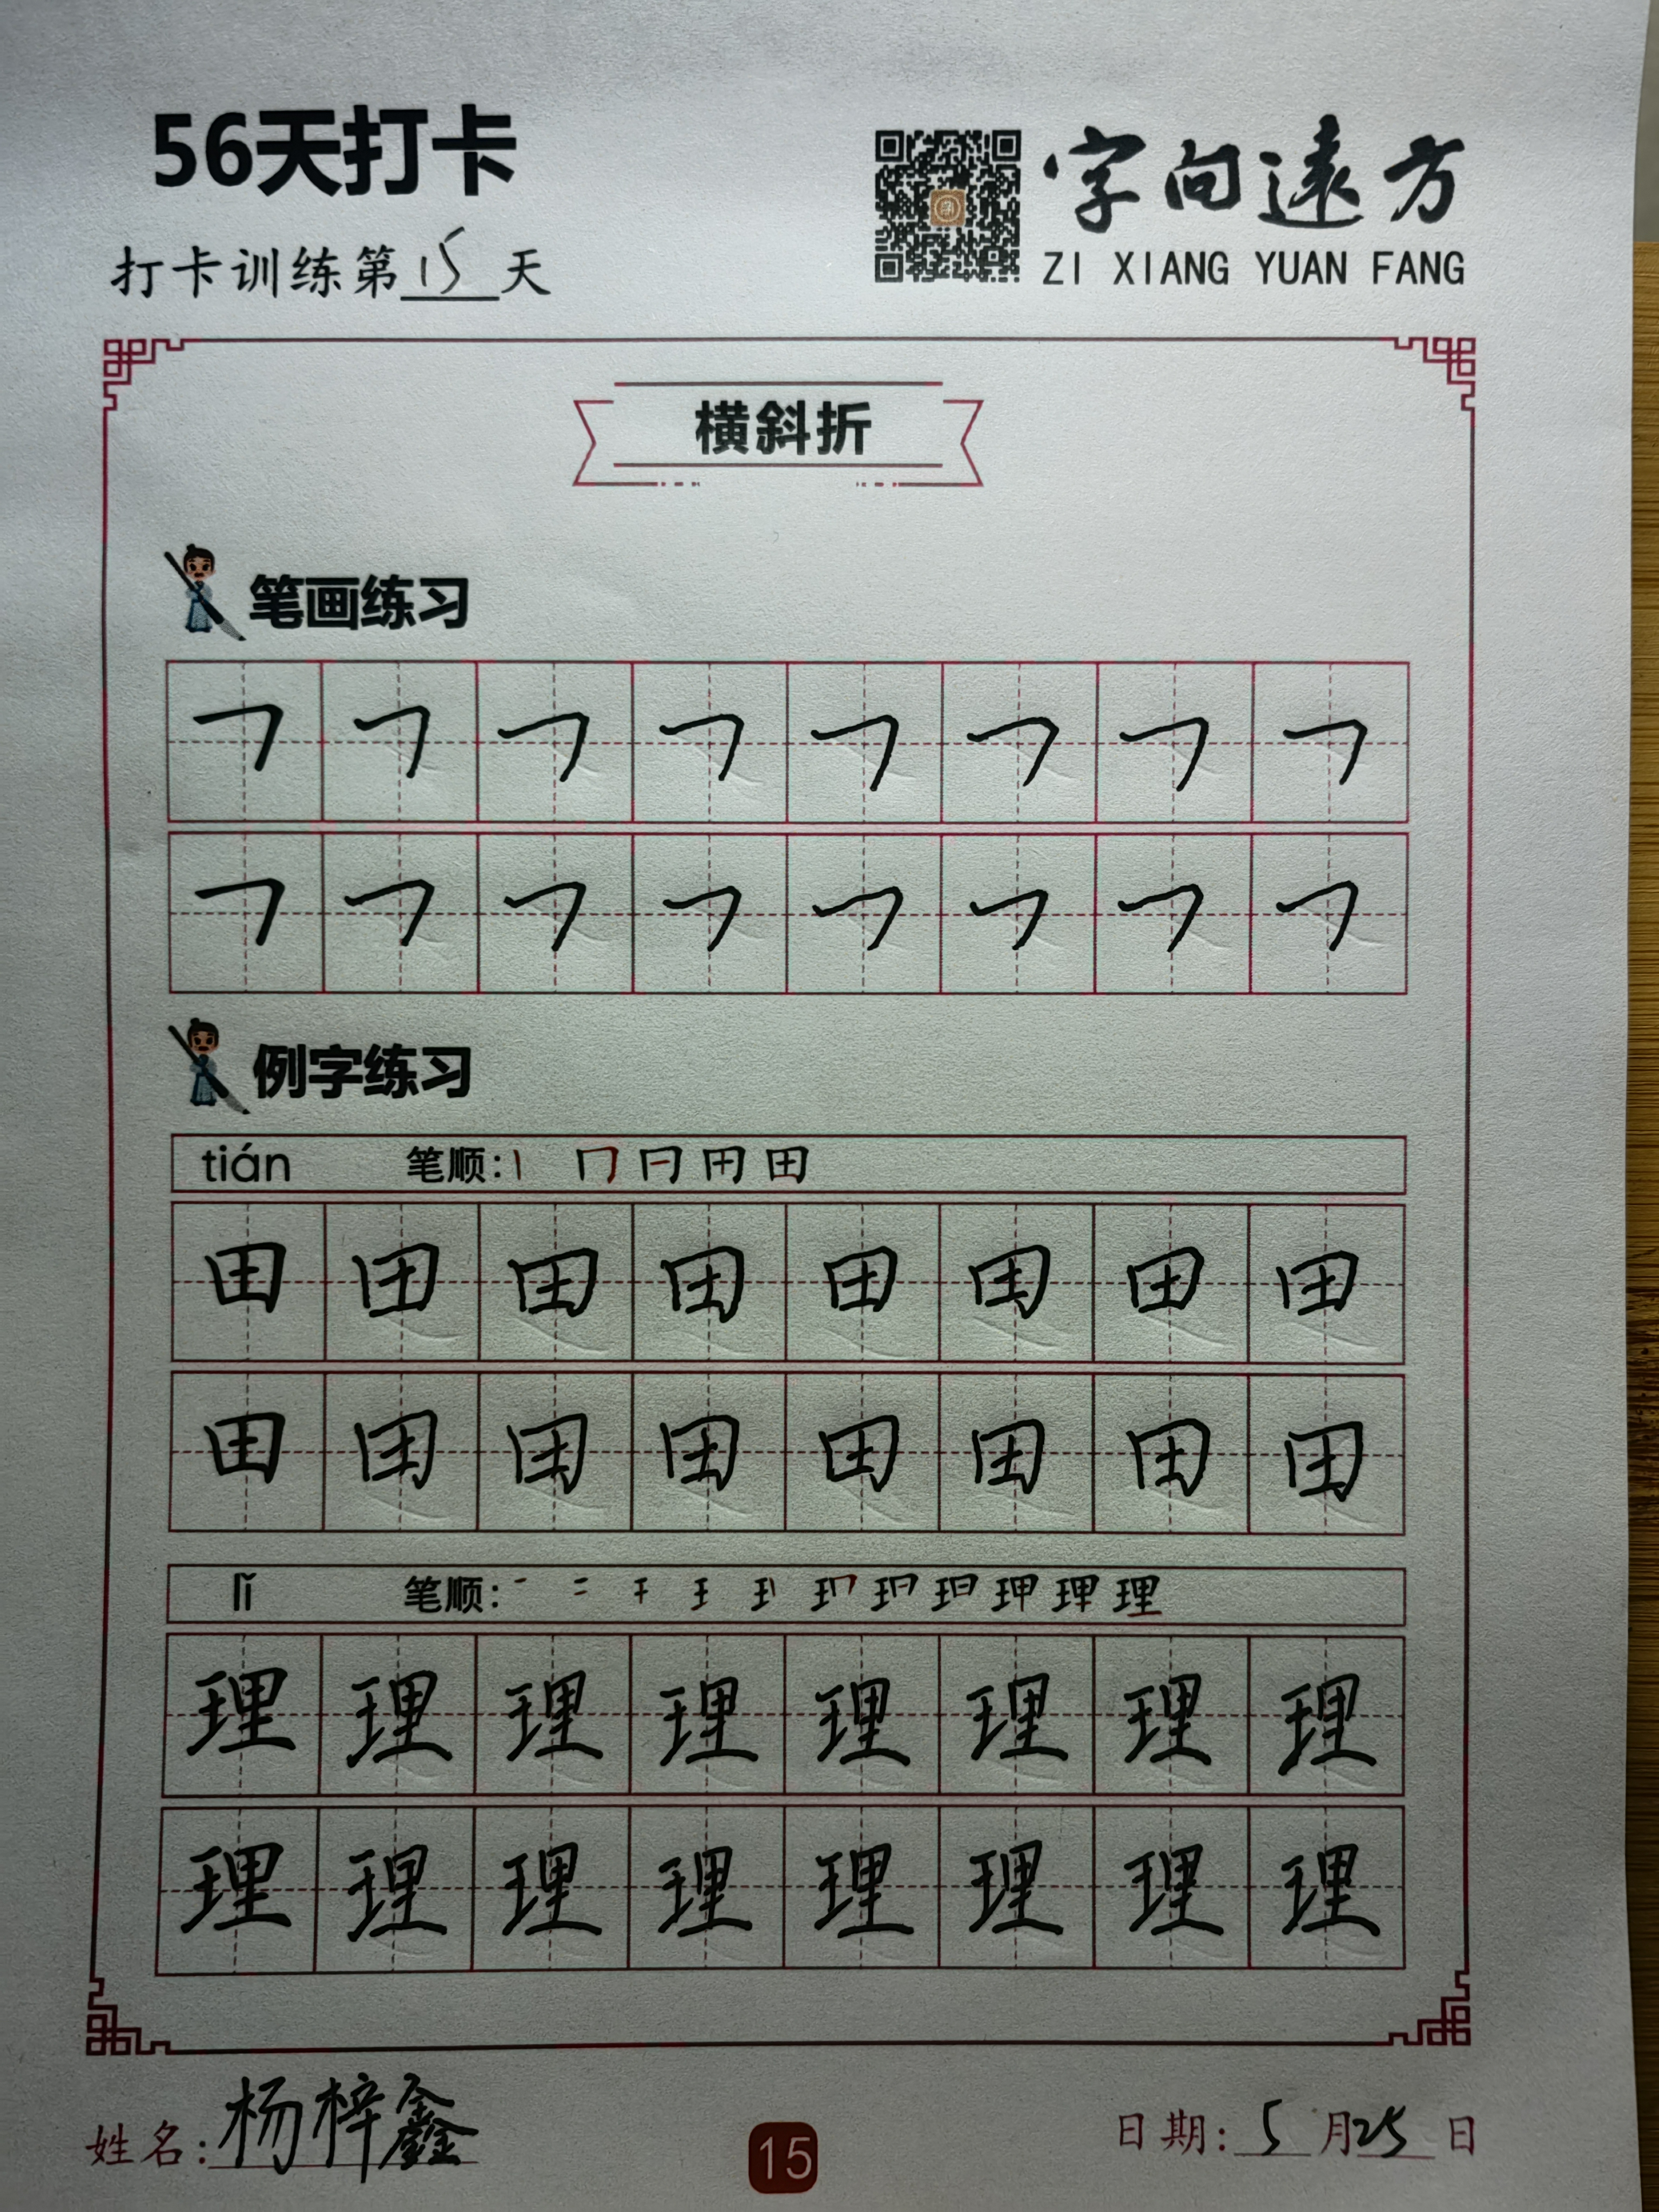 56天打卡
字向遠方
打卡训练第15天
ZI XIANG YUAN FANG
横斜折
笔画练习
㇕ ㇕ ㇕ ㇕ ㇕ ㇕ ㇕ ㇕
㇕ ㇕ ㇕ ㇕ ㇕ ㇕ ㇕ ㇕
例字练习
tián 笔顺: 丨 冂 田
田 田 田 田 田 田 田 田
田 田 田 田 田 田 田 田
lǐ 笔顺: 一 二 理
理 理 理 理 理 理 理 理
理 理 理 理 理 理 理 理
姓名: 杨梓鑫
15
日期: 5月25日